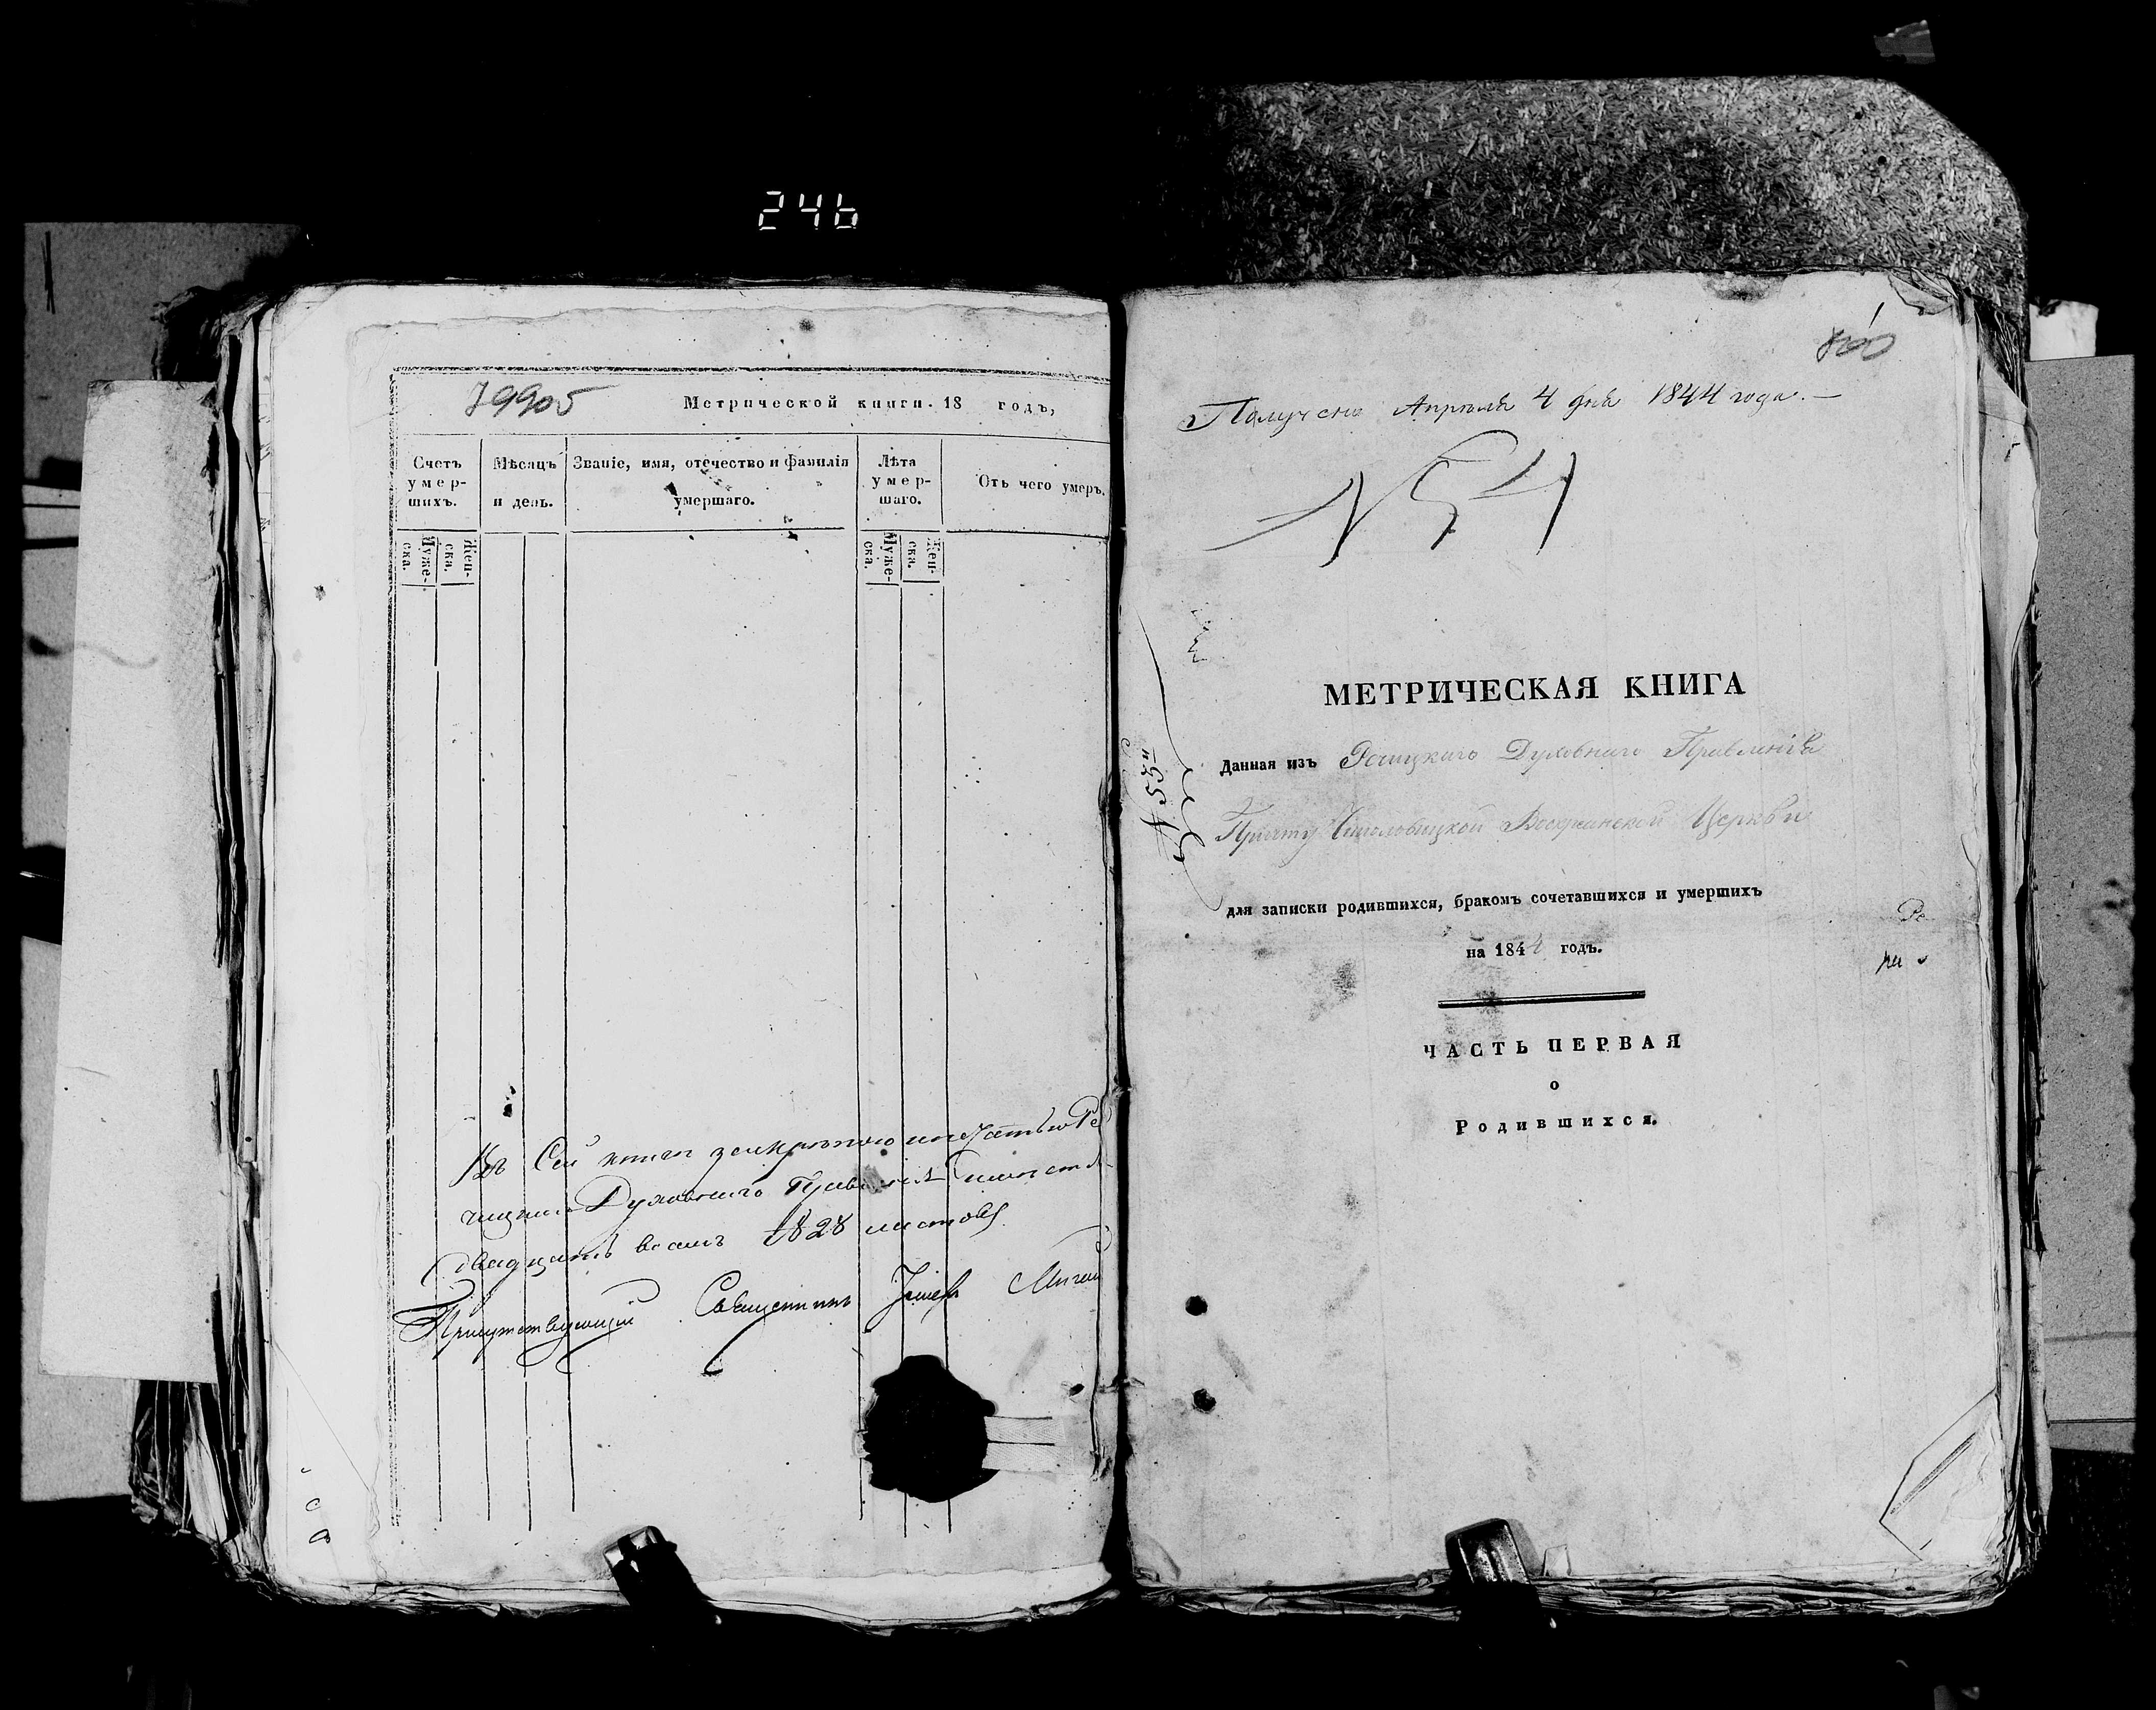 246
79905
Метрической книги. 18 годъ,
Счетъ умер-шихъ.
Мѣсяцъ и день.
Званіе, имя, отечество и фамилія умершаго.
Лѣта умер-шаго.
Отъ чего умеръ.
Муже-ска.
Жен-ска.
Муже-ска.
Жен-ска.
Въ Сей книгѣ печатью Ре
Духовнаго
двадцать восемь 1828 листовъ
Присутствующій Священникъ
Получена Апрѣля 4 дня 1844 года. —
№ 54
МЕТРИЧЕСКАЯ КНИГА
Данная изъ Духовнаго Правленія
Причту Церкви
для записки родившихся, бракомъ сочетавшихся и умершихъ
на 1844 годъ.
ЧАСТЬ ПЕРВАЯ
о
Родившихся.
Ре